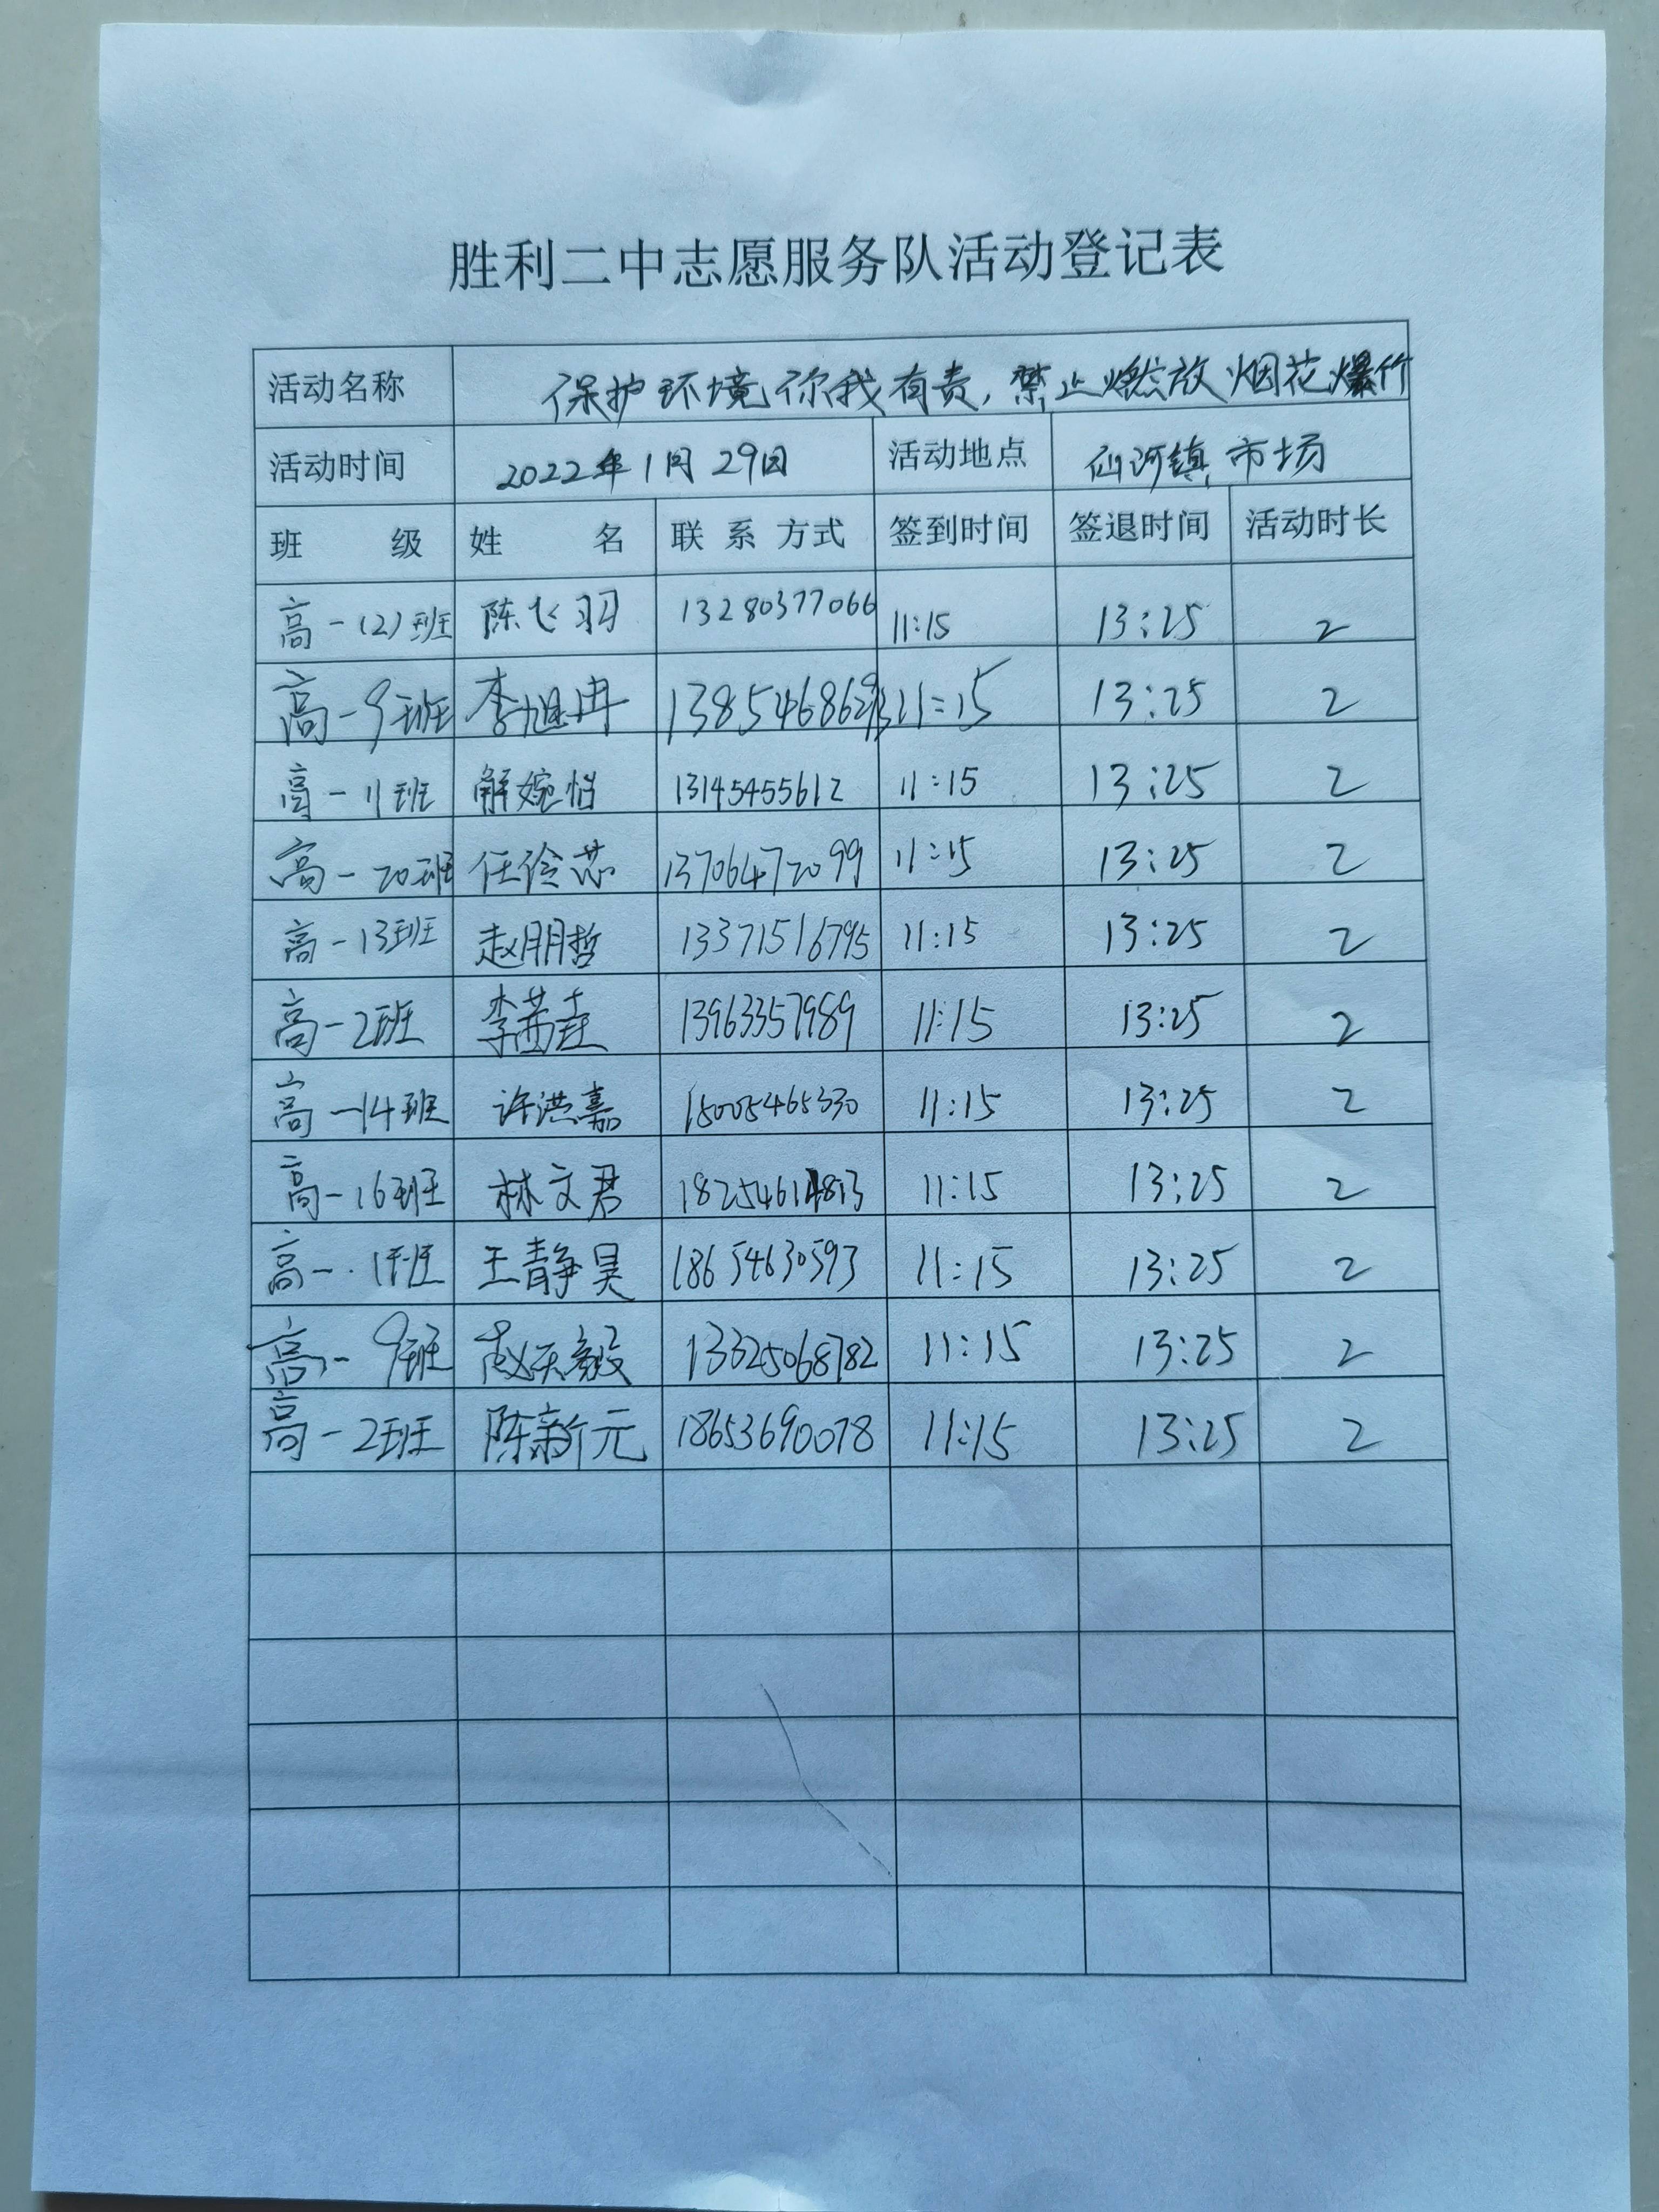 胜利二中志愿服务队活动登记表
活动名称 保护环境你我有责，禁止燃放烟花爆竹
活动时间 2022年1月29日 活动地点 仙河镇市场
班 级 姓 名 联系方式 签到时间 签退时间 活动时长
高一(2)班 陈飞羽 13280377066 11:15 13:25 2
高一9班 李旭冉 11:15 13:25 2
高一11班 解婉怡 13145455612 11:15 13:25 2
高一20班 任 芯 13706472099 11:15 13:25 2
高一13班 赵朋哲 13371516795 11:15 13:25 2
高一2班 李茜 13963357989 11:15 13:25 2
高一14班 许洪嘉 15005465330 11:15 13:25 2
高一16班 林文君 11:15 13:25 2
高一1班 王静昊 18654630593 11:15 13:25 2
高一9班 赵天毅 13325068782 11:15 13:25 2
高一2班 陈新元 18653690078 11:15 13:25 2